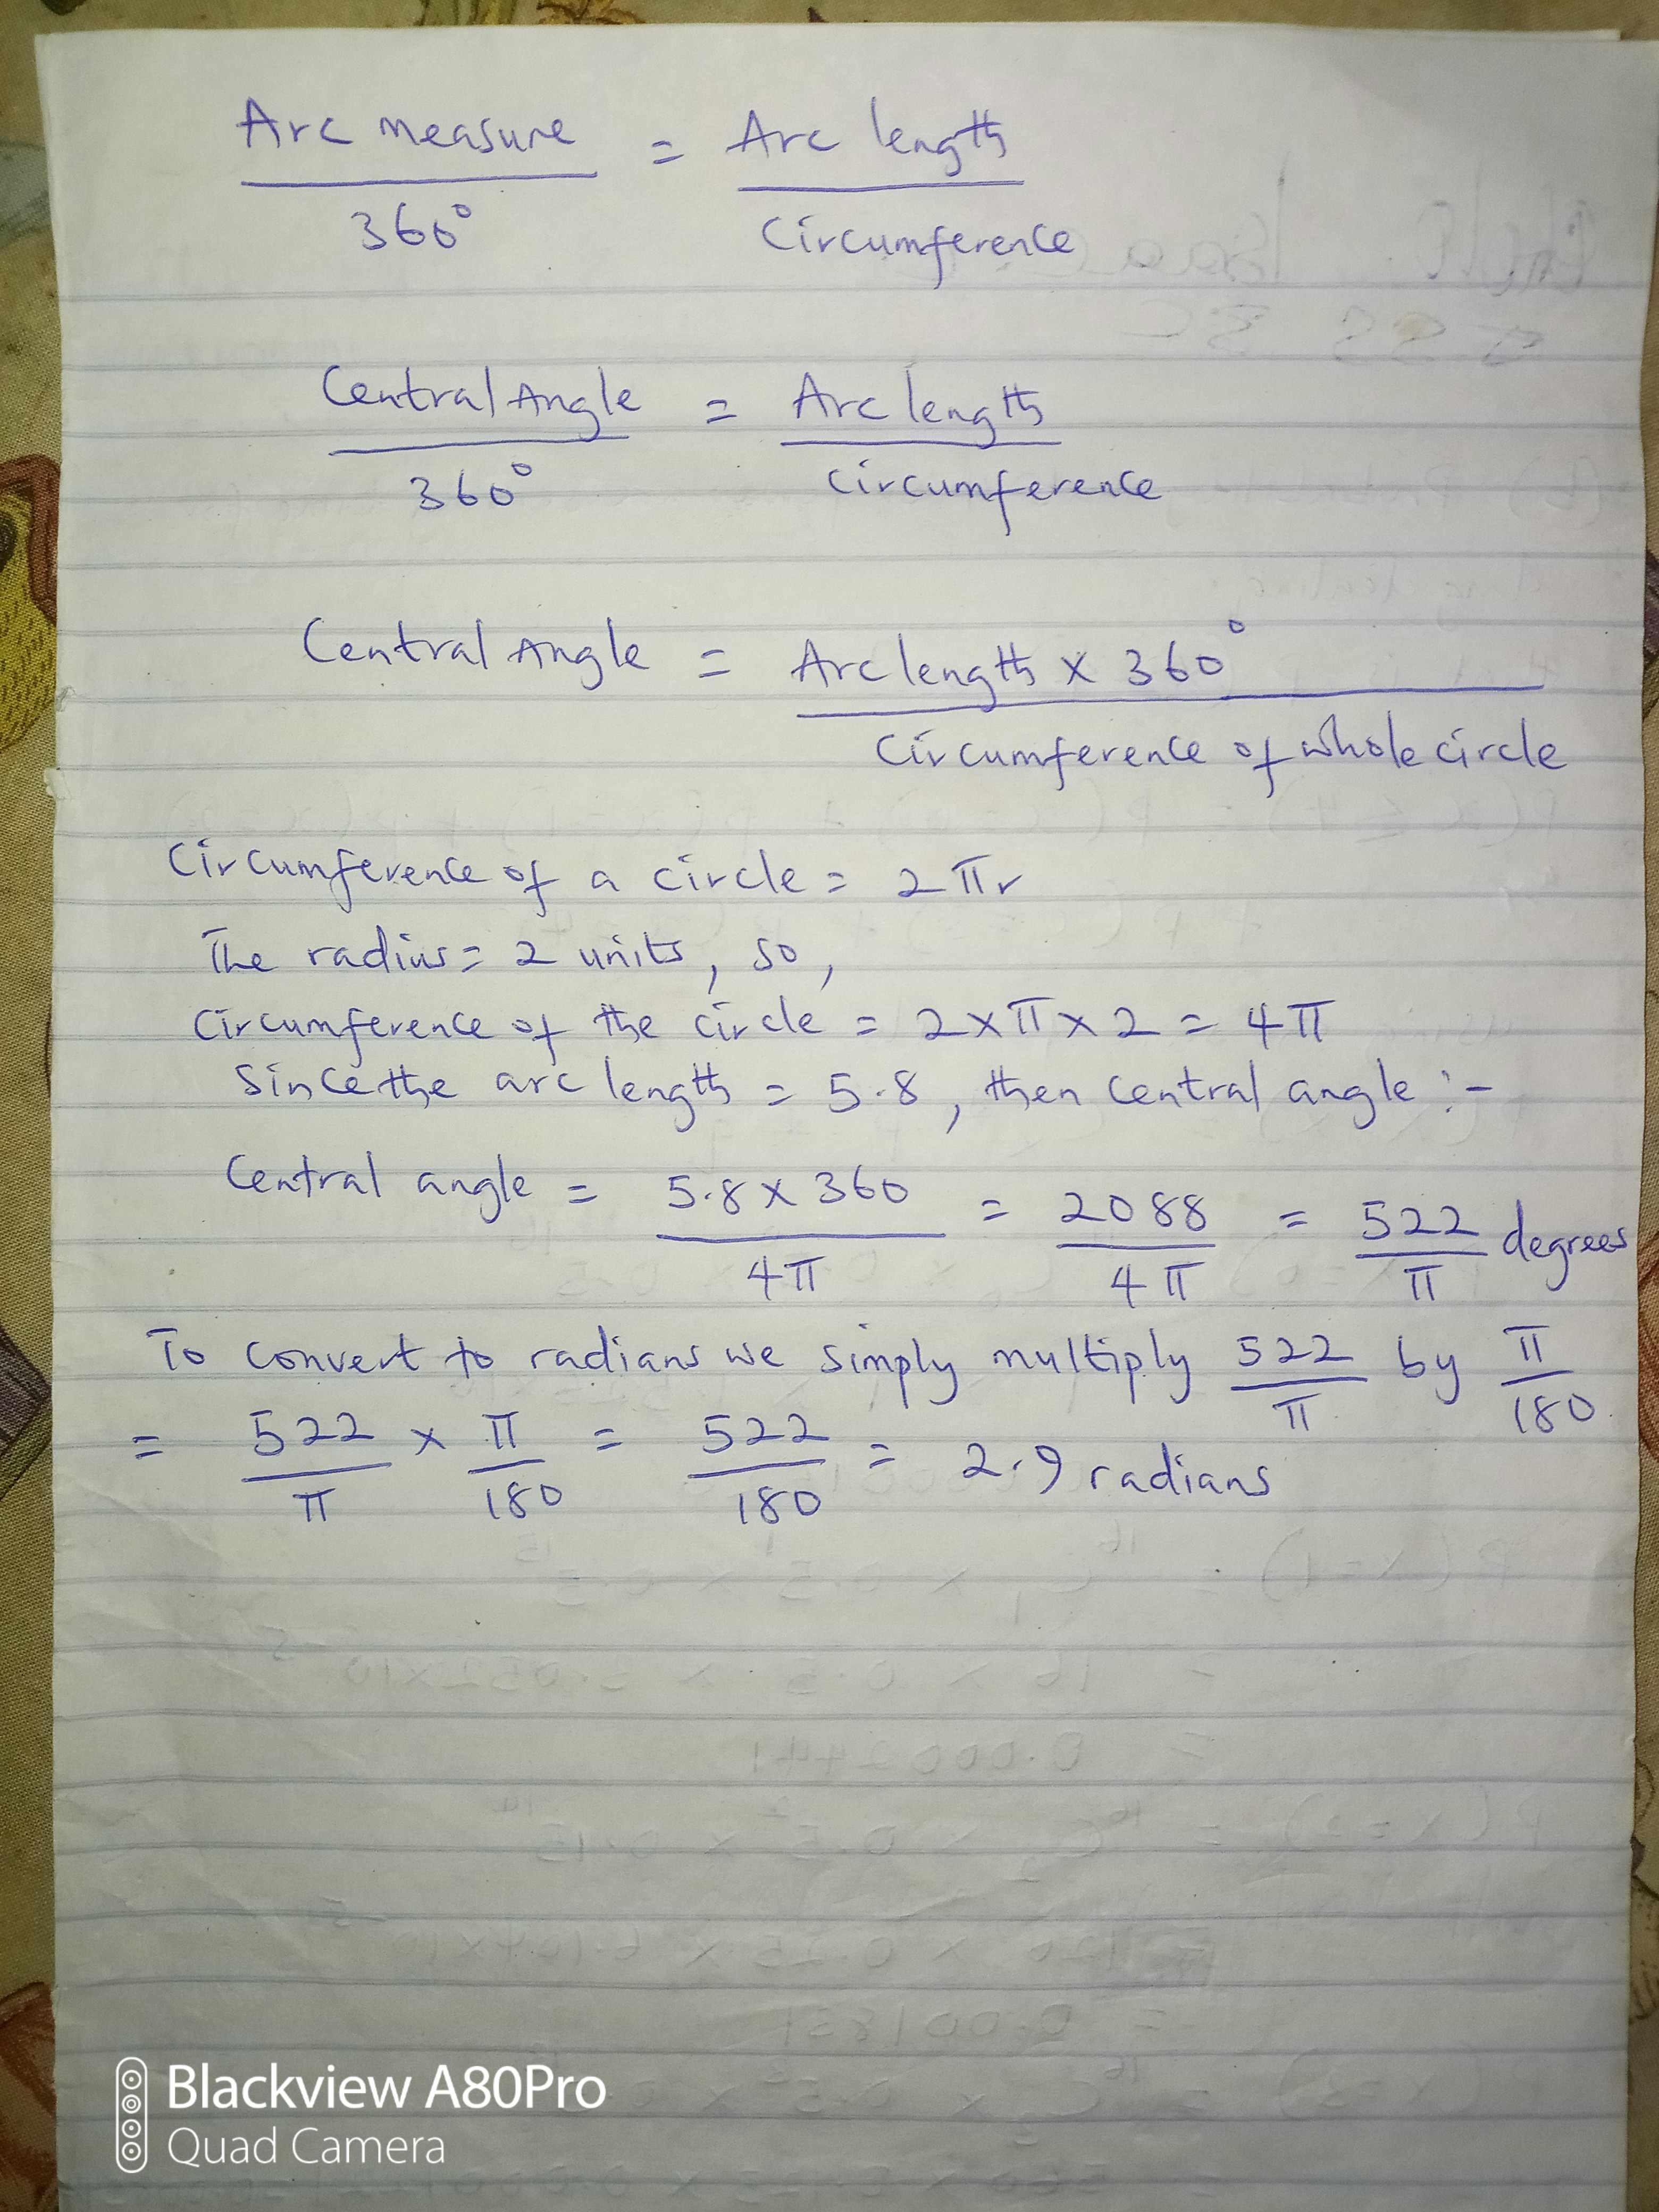 Arc measure = Arc length
360° Circumference
Central Angle = Arc length
360° Circumference
Central Angle = Arc length x 360°
Circumference of whole circle
Circumference of a circle = 2πr
The radius = 2 units, so,
Circumference of the circle = 2xπx2 = 4π
Since the arc length = 5.8, then central angle :-
Central angle = 5.8 x 360 = 2088 = 522 degrees
4π 4π π
To convert to radians we simply multiply 522 by π
π 180
= 522 x π = 522 = 2.9 radians
π 180 180
Blackview A80Pro
Quad Camera